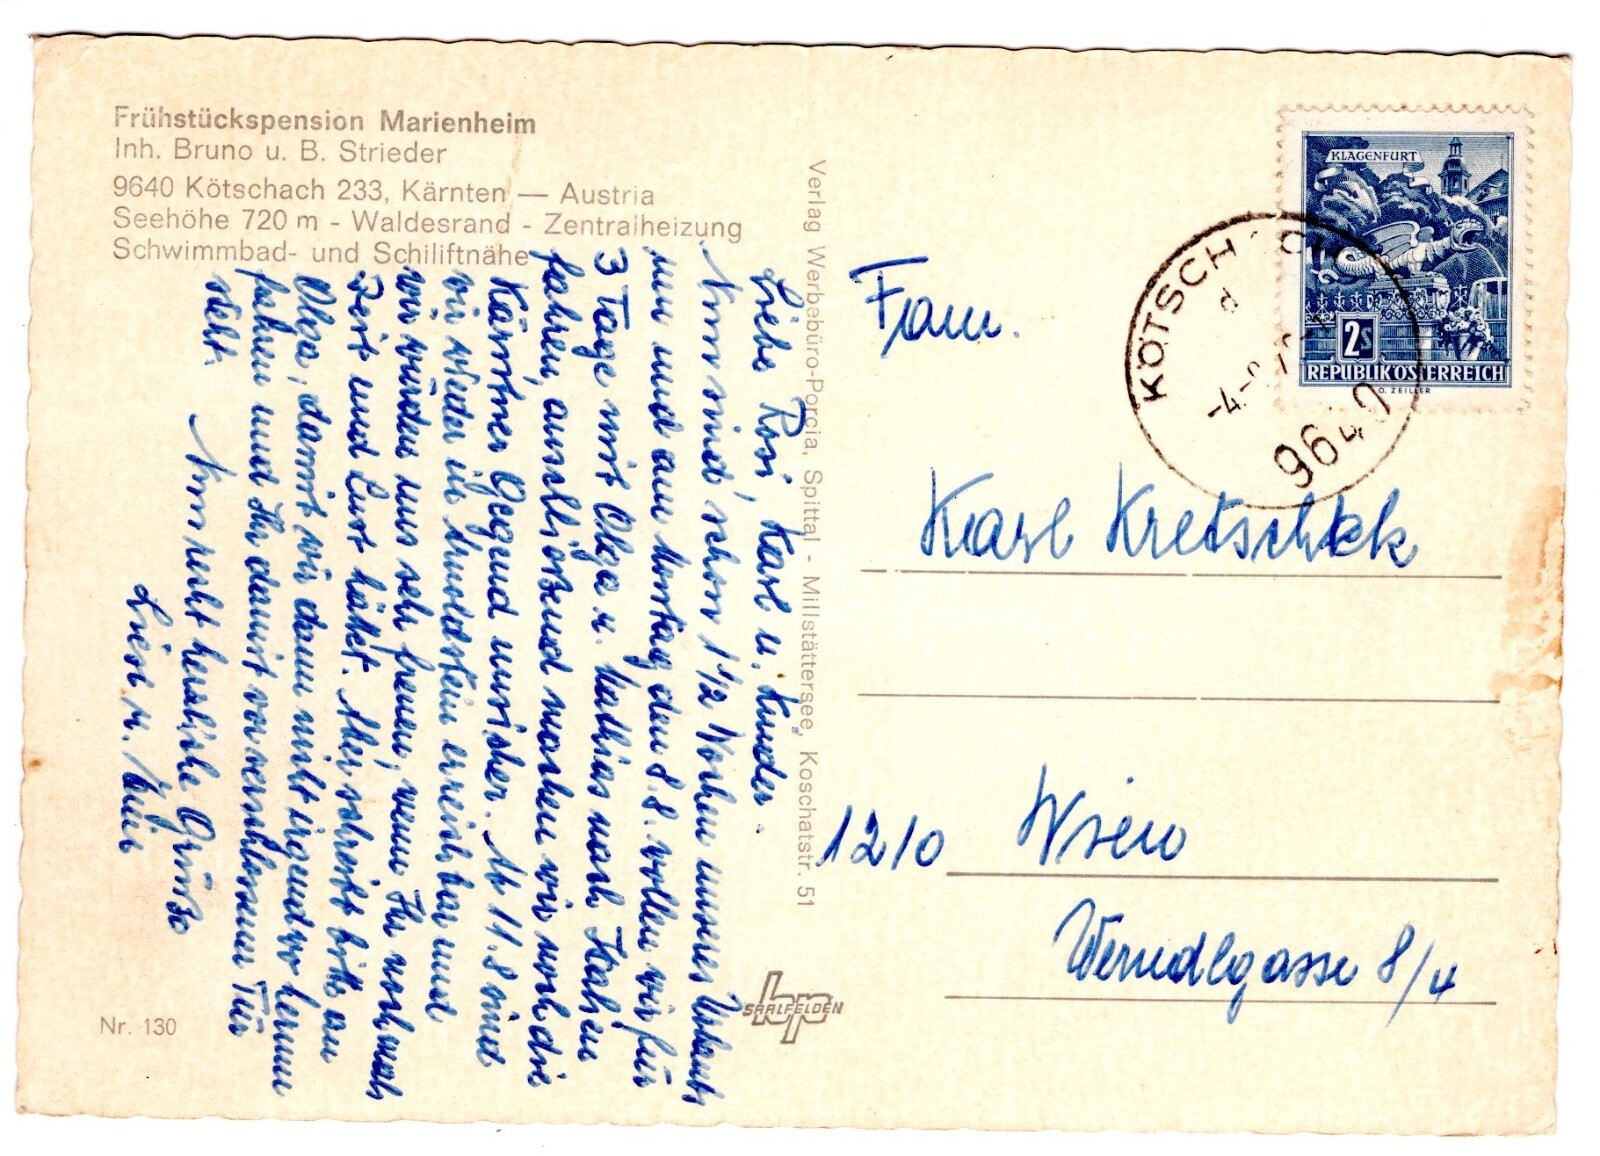 Frühstückspension Marienheim
Inh. Bruno u. B. Strieder
9640 Kötschach 233, Kärnten — Austria
Seehöhe 720 m - Waldesrand - Zentralheizung
Schwimmbad- und Schiliftnähe
Liebe Rosi, Karl u. Kinder.
Nun sind schon 1 1/2 Wochen unseres Urlaubs
um und am Montag den 8.8. wollen wir für
3 Tage mit Olga u. Mathias nach Italien
fahren, anschließend machen wir noch die
Kärntner Gegend unsicher. Ab 11.8 sind
wir wieder in Arnoldstein erreichbar und
wir würden uns sehr freuen, wenn Ihr noch auch
Zeit und Lust hättet. Aber schreibt bitte an
Olga, damit wir dann nicht irgendwo herum
fahren und Ihr damit vor verschlossener Tür
steht.
Nun recht herzliche Grüße
Liesl u.
Nr. 130
Verlag Werbebüro-Porcia, Spittal - Millstättersee, Koschatstr. 51
SAALFELDEN
KLAGENFURT
2S
REPUBLIK ÖSTERREICH
O. ZEILLER
KÖTSCHACH
d
-4.-8.7
9640
Fam.
Karl Kretschek
1210 Wien
Werndlgasse 8/4